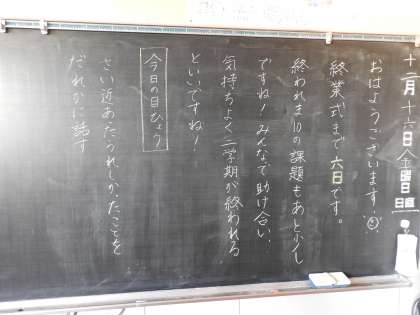 十二月十六日 金曜日
日直
おはようございます!
終業式まで六日です。
終われま10の課題もあと少し
ですね!みんなで助け合い、
気持ちよく二学期が終われる
といいですね!
今日の目ひょう
さい近あたうれしかったことを
だれかに話す